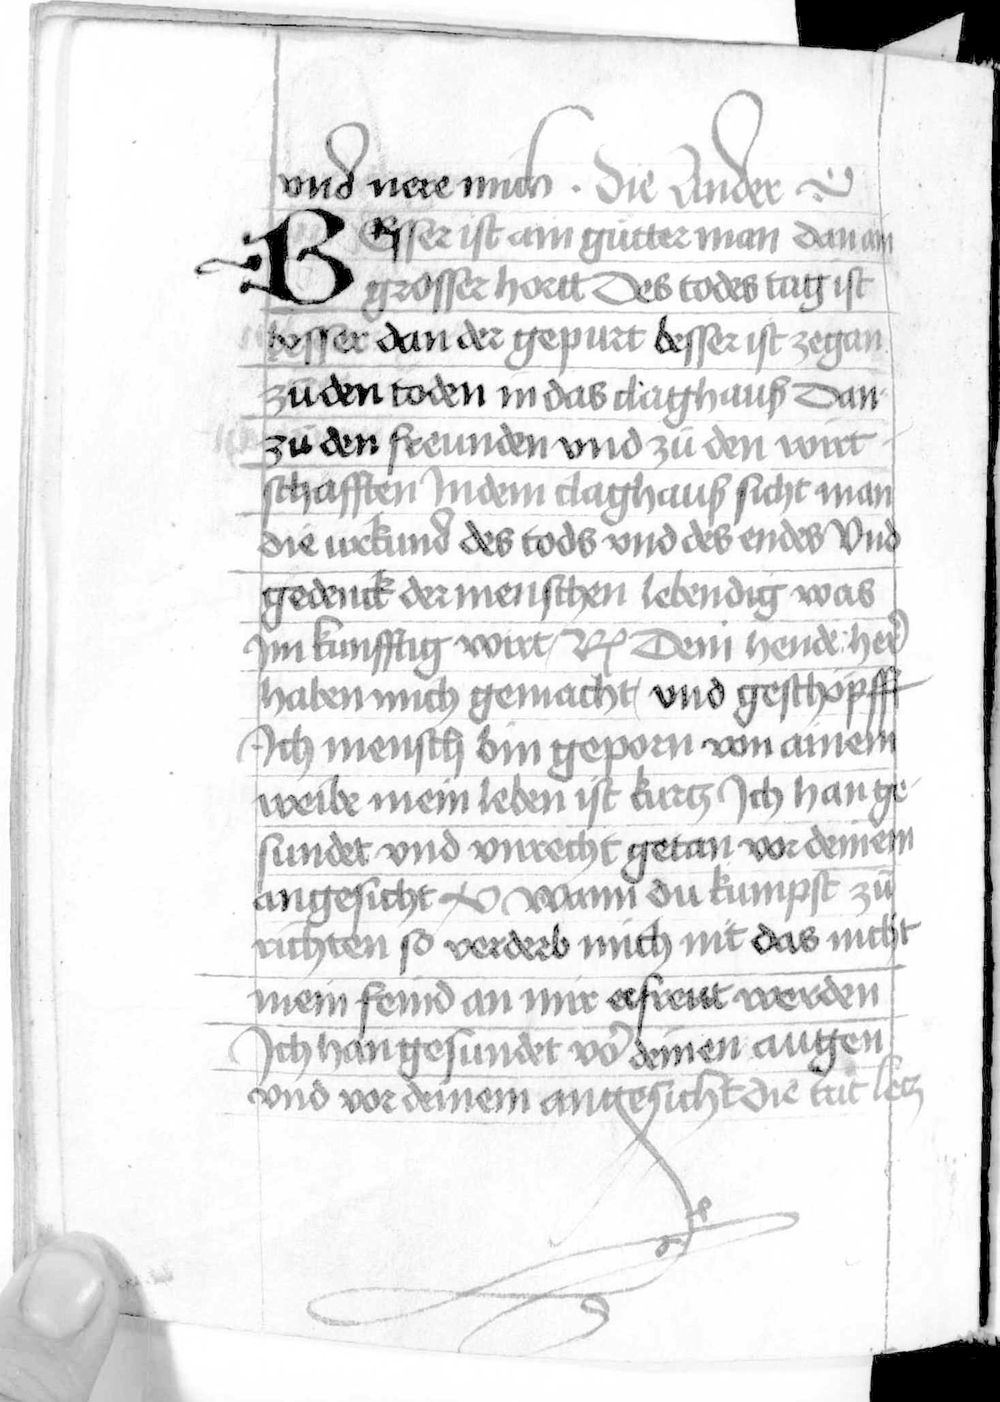 vnd nere mich · die Ander
BEsser ist ain gütter man dan ain
grosser hortt Des todes tag ist
besser dan der gepurt besser ist zegan
zü den toden in das claghauß Dan
zü den freunden vnd zü den wirt
schafften In dem claghauß sicht man
die urkund des tods vnd des endes Vnd
gedenck der menschen lebendig was
Im kunfftig wirt / R Dein hende her
haben mich gemacht / vnd geschöpff
Ich mensch bin geporn von ainem
weibe mein leben ist kurcz Ich han ge
sundet vnd vnrecht getan vor deinem
angesicht V wann du kumpst zü
richten so verderb mich nit das nicht
mein feind an mir erfreut werden
Ich han gesundet vor deinen augen
vnd vor deinem angesicht die trit lecz